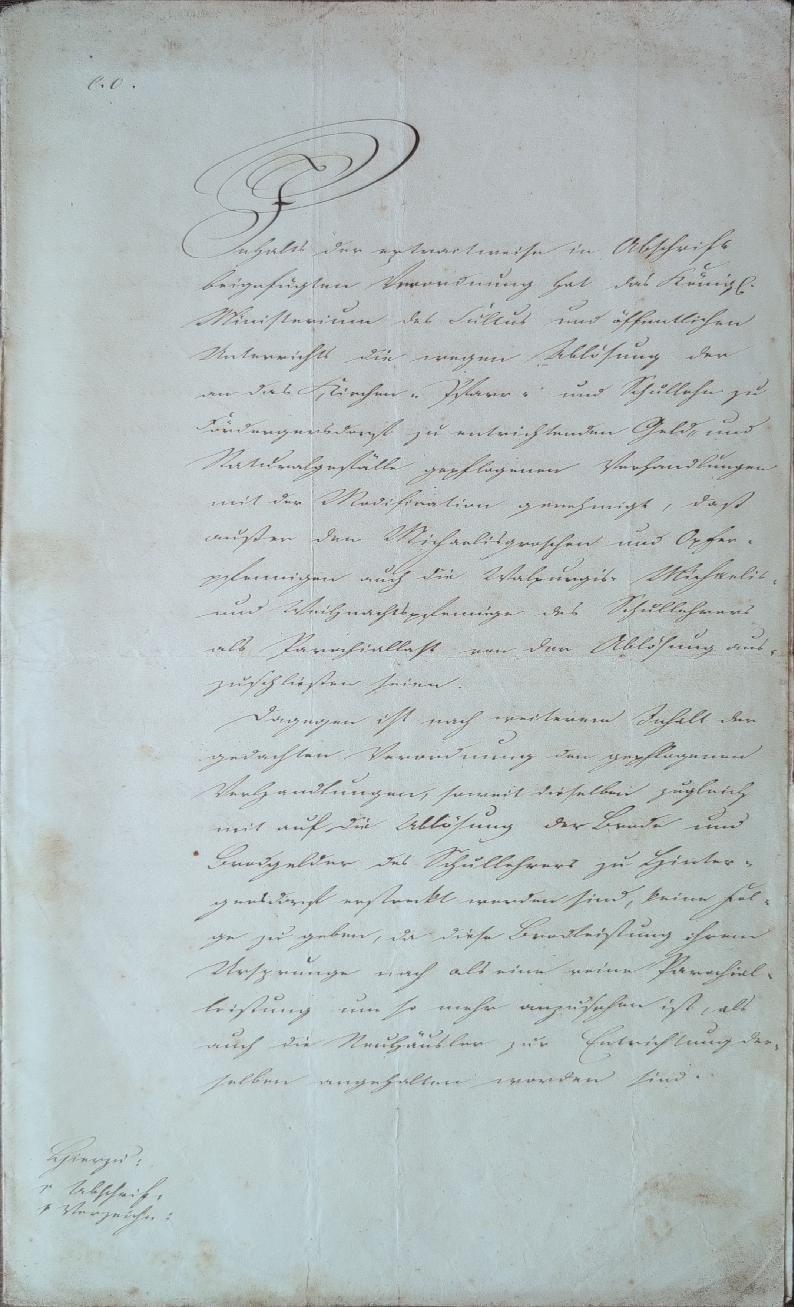 e. o.
Inhalts der extractweise in Abschrift
beigefügten Verordnung hat das Königl.
Ministerium des Cultus und öffentlichen
Unterrichts die wegen Ablösung der
an das Kirchen- Pfarr- und Schullehn zu
Fördergersdorf zu entrichtenden Geld- und
Naturalgefälle gepflogenen Verhandlungen
mit der Modification genehmigt, daß
außer den Michaelisgroschen und Opfer-
pfennigen auch die Walpurgis- Michaelis-
und Weihnachtspfennige des Schullehrers
als Parochiallast von der Ablösung aus-
zuschließen seien.
Dagegen ist nach weiterem Inhalt der
gedachten Verordnung den gepflogenen
Verhandlungen, soweit dieselben zugleich
mit auf die Ablösung der Brode und
Brodgelder des Schullehrers zu Hinter-
gersdorf erstreckt worden sind, keine Fol-
ge zu geben, da diese Brodleistung ihrem
Ursprunge nach als eine reine Parochial-
leistung um so mehr anzusehen ist, als
auch die Neuhäusler zur Entrichtung der-
selben angehalten worden sind.
Hierzu:
1 Abschrift.
1 Verzeichn: